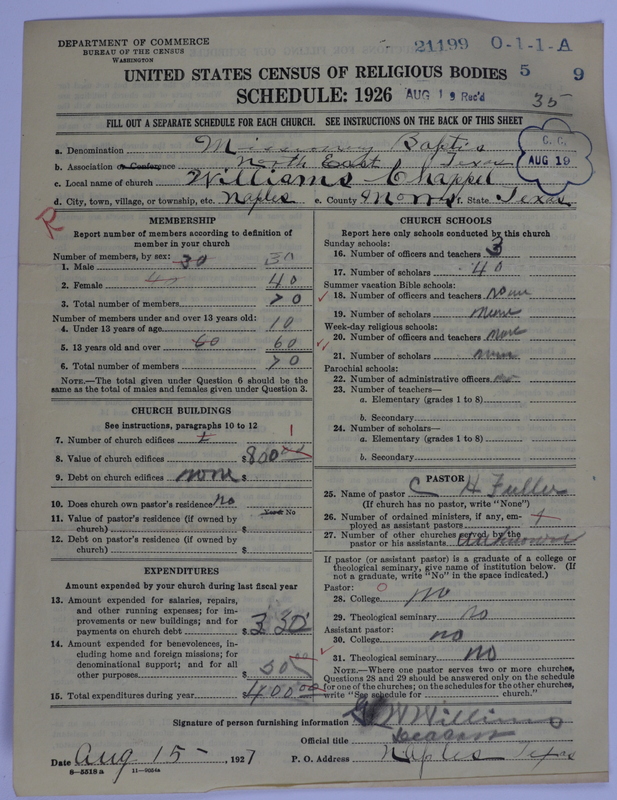 DEPARTMENT OF COMMERCE
BUREAU OF THE CENSUS
WASHINGTON
21199 0-1-1-A
UNITED STATES CENSUS OF RELIGIOUS BODIES 5 9
SCHEDULE: 1926 AUG 19 Rec'd 35
FILL OUT A SEPARATE SCHEDULE FOR EACH CHURCH. SEE INSTRUCTIONS ON THE BACK OF THIS SHEET
C. C.
AUG 19
a. Denomination Missionary Baptis
b. Association or Conference North East Texas
c. Local name of church Williams Chappel
d. City, town, village, or township, etc. Naples e. County Morris f. State Texas
R
MEMBERSHIP
Report number of members according to definition of
member in your church
Number of members, by sex:
1. Male 30 30
2. Female 40 40
3. Total number of members 70
Number of members under and over 13 years old:
4. Under 13 years of age 10
5. 13 years old and over 60 60
6. Total number of members 70
NOTE.—The total given under Question 6 should be the
same as the total of males and females given under Question 3.
CHURCH BUILDINGS
See instructions, paragraphs 10 to 12
7. Number of church edifices 1 1
8. Value of church edifices $800
9. Debt on church edifices none
10. Does church own pastor's residence No
Yes or No
11. Value of pastor's residence (if owned by
church) $
12. Debt on pastor's residence (if owned by
church) $
EXPENDITURES
Amount expended by your church during last fiscal year
13. Amount expended for salaries, repairs,
and other running expenses; for im-
provements or new buildings; and for
payments on church debt $
14. Amount expended for benevolences, in-
cluding home and foreign missions; for
denominational support; and for all
other purposes $50
15. Total expenditures during year $400 00
CHURCH SCHOOLS
Report here only schools conducted by this church
Sunday schools:
16. Number of officers and teachers 3
17. Number of scholars 40
Summer vacation Bible schools:
18. Number of officers and teachers None
19. Number of scholars None
Week-day religious schools:
20. Number of officers and teachers None
21. Number of scholars
Parochial schools:
22. Number of administrative officers
23. Number of teachers—
a. Elementary (grades 1 to 8)
b. Secondary
24. Number of scholars—
a. Elementary (grades 1 to 8)
b. Secondary
PASTOR
25. Name of pastor C H Fuller
(If church has no pastor, write "None")
26. Number of ordained ministers, if any, em-
ployed as assistant pastors 1
27. Number of other churches served by the
pastor or his assistants unknown
If pastor (or assistant pastor) is a graduate of a college or
theological seminary, give name of institution below. (If
not a graduate, write "No" in the space indicated.)
Pastor: 0
28. College no
29. Theological seminary no
Assistant pastor:
30. College no
31. Theological seminary no
NOTE.—Where one pastor serves two or more churches,
Questions 28 and 29 should be answered only on the schedule
for one of the churches; on the schedules for the other churches,
write "See schedule for church."
Signature of person furnishing information
Official title Deacon
Date Aug 15, 1927 P. O. Address Naples Texas
8-5518 a 11-9054a